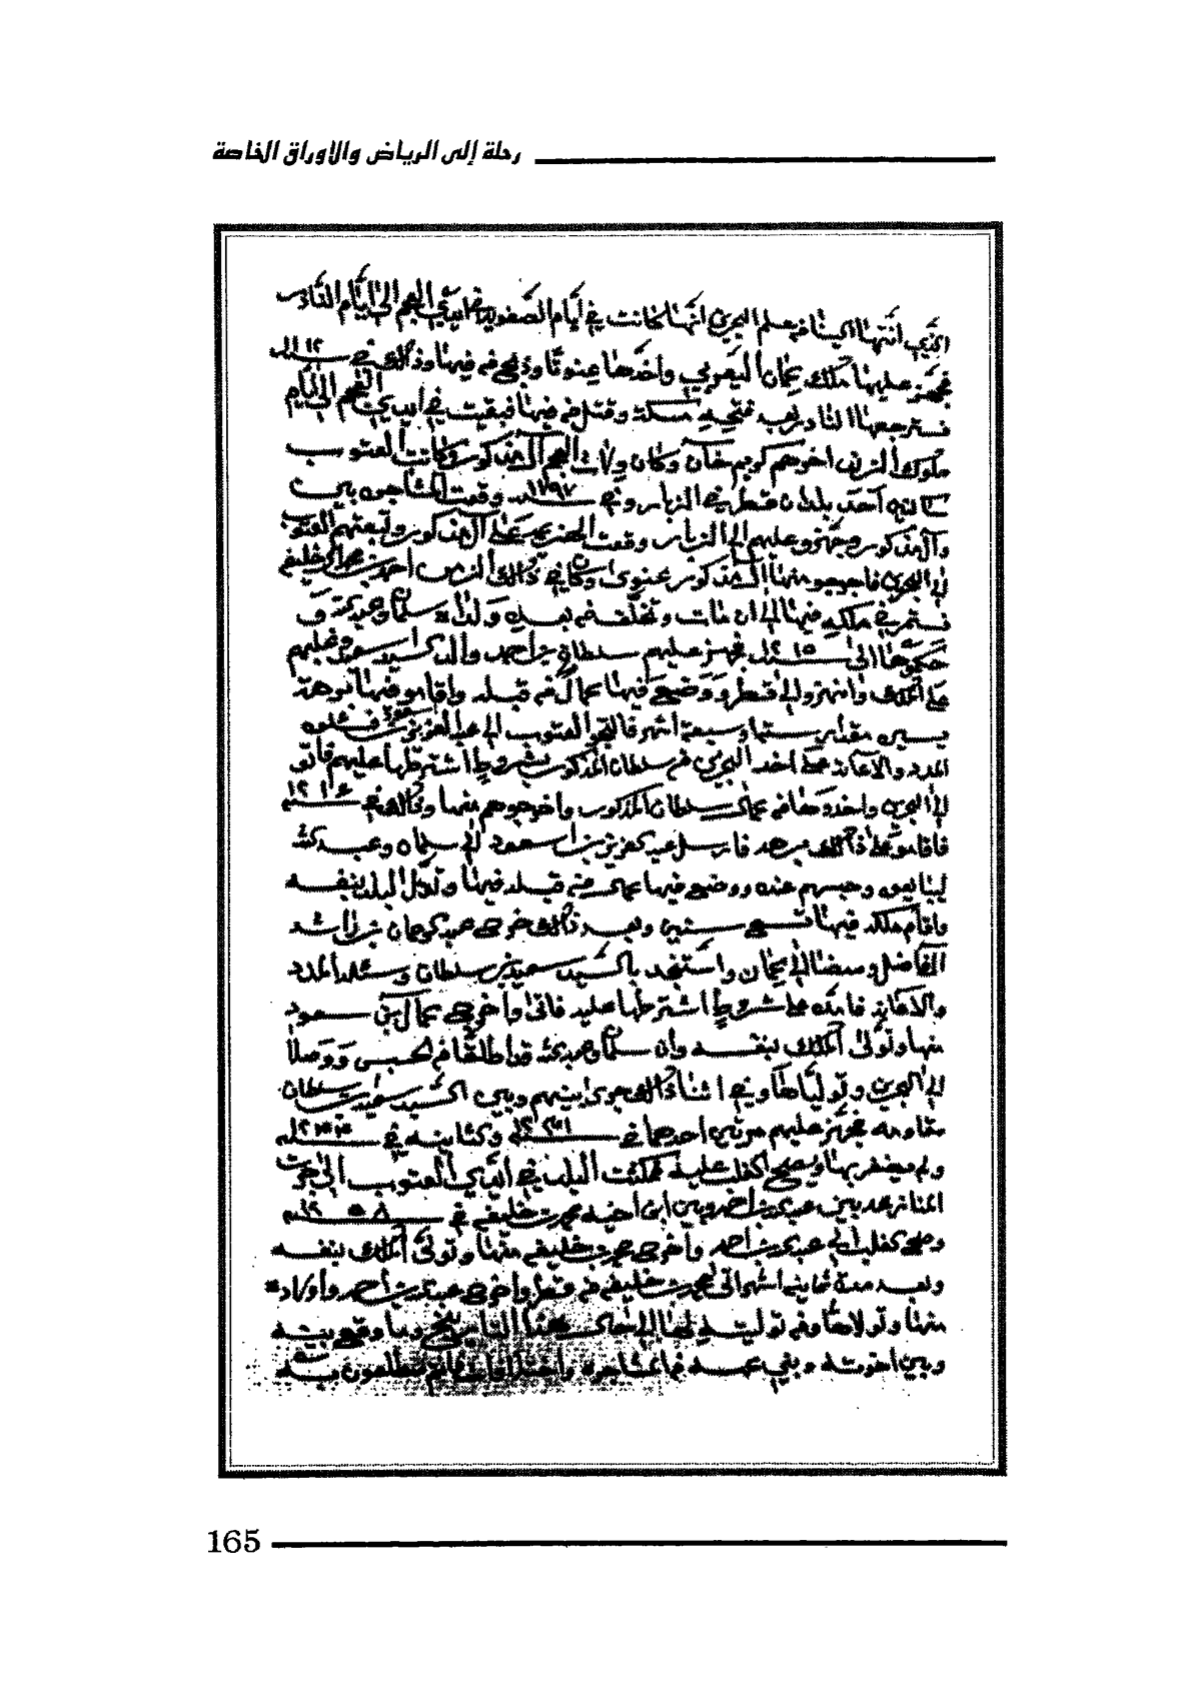 رحلة إلى الرياض والاوراق الخاصة
الذي انتهنا الينا من علم البحرين انها كانت في ايام الصفويه في ايدي العجم الى ايام النادر
فجهز عليها ملك عمان اليعربي واخذها عنوتا وذبح من فيها وذالك في سنة ١١٢٠
فسترجعها النادر بعد فتحه مسكة وقتل من فيها فبقيت في ايدي العجم الى ايام
ملوك الزند اخرهم كريم خان وكان ولات العجم آل مذكور وكانت العتوب
ساكنه احد بلدان قطر في الزباره وفي سنة ١١٩٧ وقعت المشاجره بين
وآل مذكور وجهزو عليهم الى الزباره وقعت الهزيمه على آل مذكور وتبعتهم العتوب
الى البحرين فاخرجو منها آل مذكور عنوى وكان في ذالك الزمن احمد بن محمد آل خليفه
فستمر في ملكه فيها الى ان مات وتخلف من بعده ولداه سلمان وعبدالله
حكموها الى سنة ١٢١٥ فجهز عليهم سلطان بن احمد والد السيد سعيد وغلبهم
على الملك وانهزو الى قطر ووضع فيها عمال من قبله واقامو فيها
يسيره مقدار ستة او سبعة اشهر فالتجو العتوب الى عبدالعزيز بن سعود
المدد والاعانة على اخذ البحرين من سلطان المذكور بشروط اشترطها عليهم فاتو
الى البحرين واخذوها من عمال سلطان المذكور واخرجوهم منها وذالك في سنة ١٢١٦
فاقامو على ذالك برهه فارسل عبدالعزيز بن سعود الى سلمان وعبدالله
ليبايعوه وحبسهم عنده ووضع فيها عمال من قبله فيها وتوكل البلد بنفسه
واقام ملكه فيها تسع سنين وبعد ذالك خرج عبدالرحمان بن راشد
الفاضل ومضا الى عمان واستنجد بالسيد سعيد بن سلطان وسئله المدد
والاعانه فامده على شروط اشترطها عليه فاتى واخرج عمال ابن سعود
منها وتولى الملك بنفسه وان سلمان وعبدالله قد اطلقا من الحبس ووصلا
الى البحرين وتوليا ها وفي اثناء ذالك جرى بينهم وبين السيد سعيد بن سلطان
مقاومه فجهز عليهم مرتين احدهما في سنة ١٢٣١ وثانيه في سنة ١٢٤٣
ولم يضفر بها ويصح الغلب عليه فمكثت البلد في ايدي العتوب الى جرت
المنازعه بين عبدالله بن احمد وبين ابن اخيه محمد بن خليفه في سنة ١٢٥٨
وصح الغلب الى عبدالله بن احمد واخرج محمد بن خليفه منها وتولى الملك بنفسه
وبعد مدة ثمانية اشهر اتى محمد بن خليفه من قطر واخرج عبدالله بن احمد واولاده
منها وتولاها ومن توليته لها الى حاك هذا التاريخ وما وقع بينه
وبين اخوته وبني عمه من المشاجره واختلافات فانتم مطلعون به
165